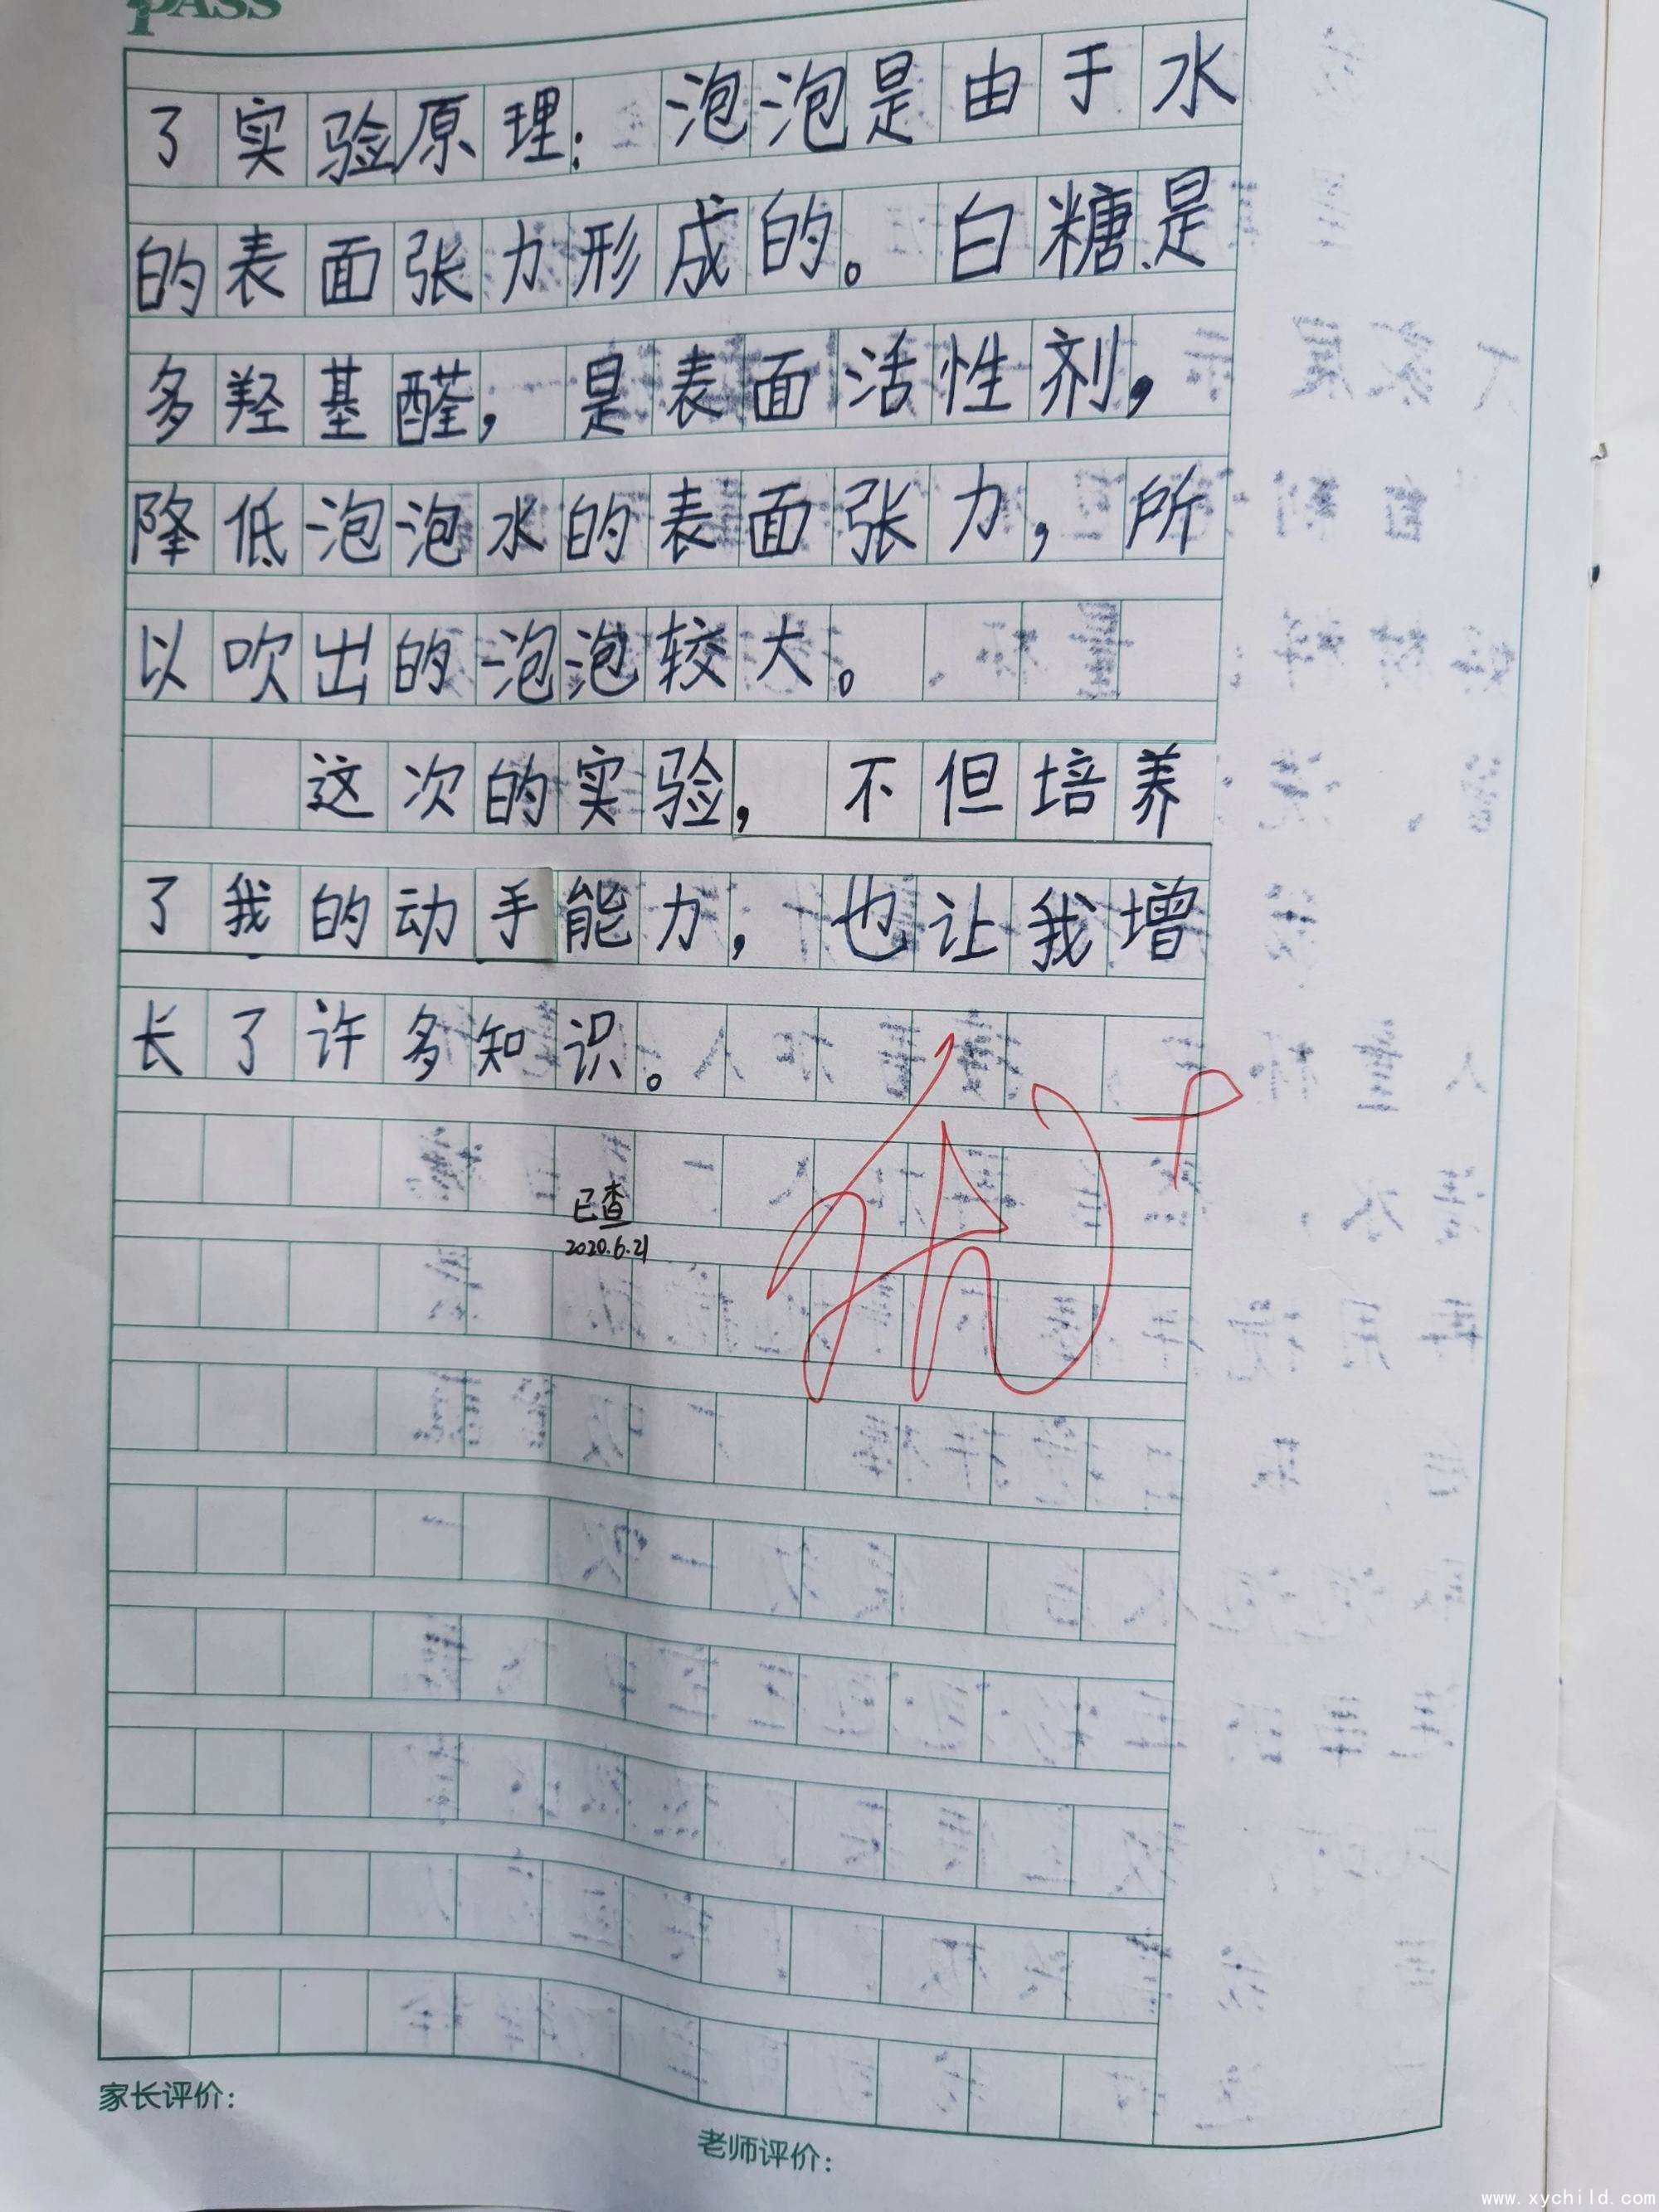 PASS
了实验原理：泡泡是由于水
的表面张力形成的。白糖是
多羟基醛，是表面活性剂，
降低泡泡水的表面张力，所
以吹出的泡泡较大。
这次的实验，不但培养
了我的动手能力，也让我增
长了许多知识。
已查
2020.6.21
家长评价：
老师评价：
www.xychild.com